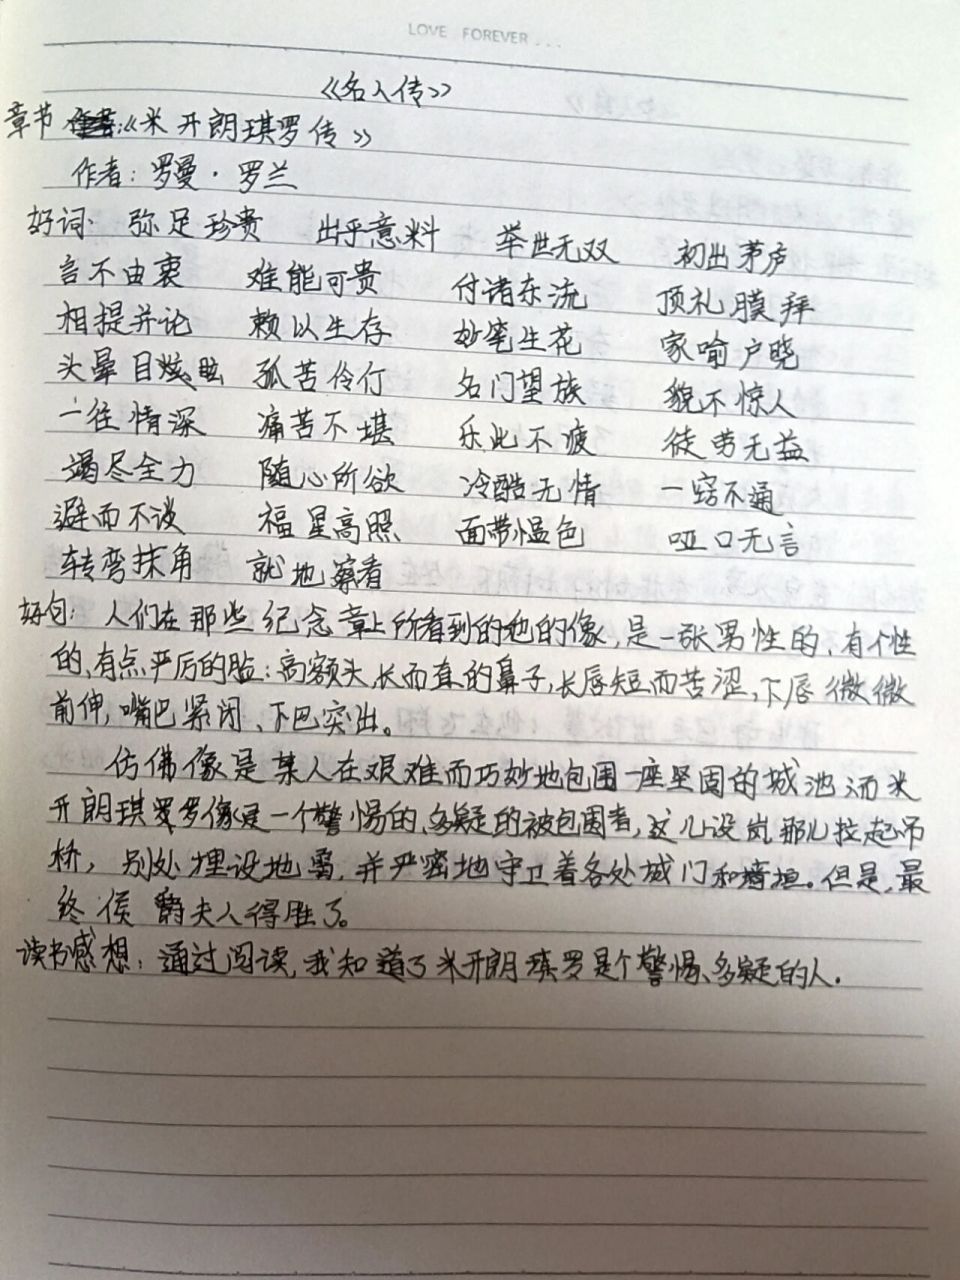 LOVE FOREVER...
《名人传》
章节:《米开朗琪罗传》
作者:罗曼·罗兰
好词: 弥足珍贵 出乎意料 举世无双 初出茅庐
言不由衷 难能可贵 付诸东流 顶礼膜拜
相提并论 赖以生存 妙笔生花 家喻户晓
头晕目眩 孤苦伶仃 名门望族 貌不惊人
一往情深 痛苦不堪 乐此不疲 徒劳无益
竭尽全力 随心所欲 冷酷无情 一窍不通
避而不谈 福星高照 面带愠色 哑口无言
转弯抹角 就地察看
好句: 人们在那些纪念章上所看到的他的像,是一张男性的、有个性
的、有点严厉的脸:高额头,长而直的鼻子,长唇短而苦涩,下唇微微
前伸,嘴巴紧闭、下巴突出。
仿佛像是某人在艰难而巧妙地包围一座坚固的城池,而米
开朗琪罗像是一个警惕的、多疑的被包围者,这儿设岚那儿拉起吊
桥,别处埋设地雷,并严密地守卫着各处城门和墙垣。但是,最
终侯爵夫人得胜了。
读书感想:通过阅读,我知道了米开朗琪罗是个警惕、多疑的人.